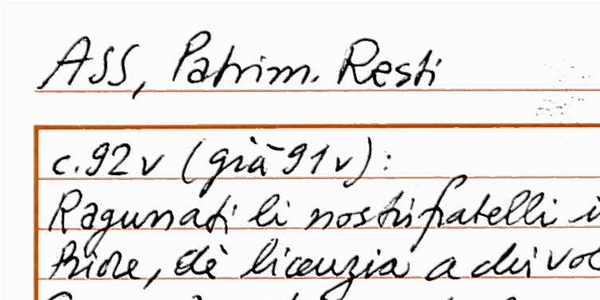 ASS, Patrim. Resti
c.92v (già 91v):
Ragunati li nostri fratelli i
Priore, dè licenzia a chi vol